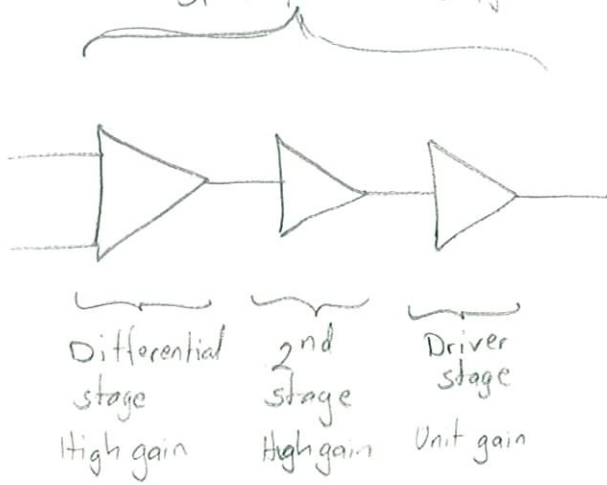 Differential
stage
High gain
2nd
stage
High gain
Driver
stage
Unit gain